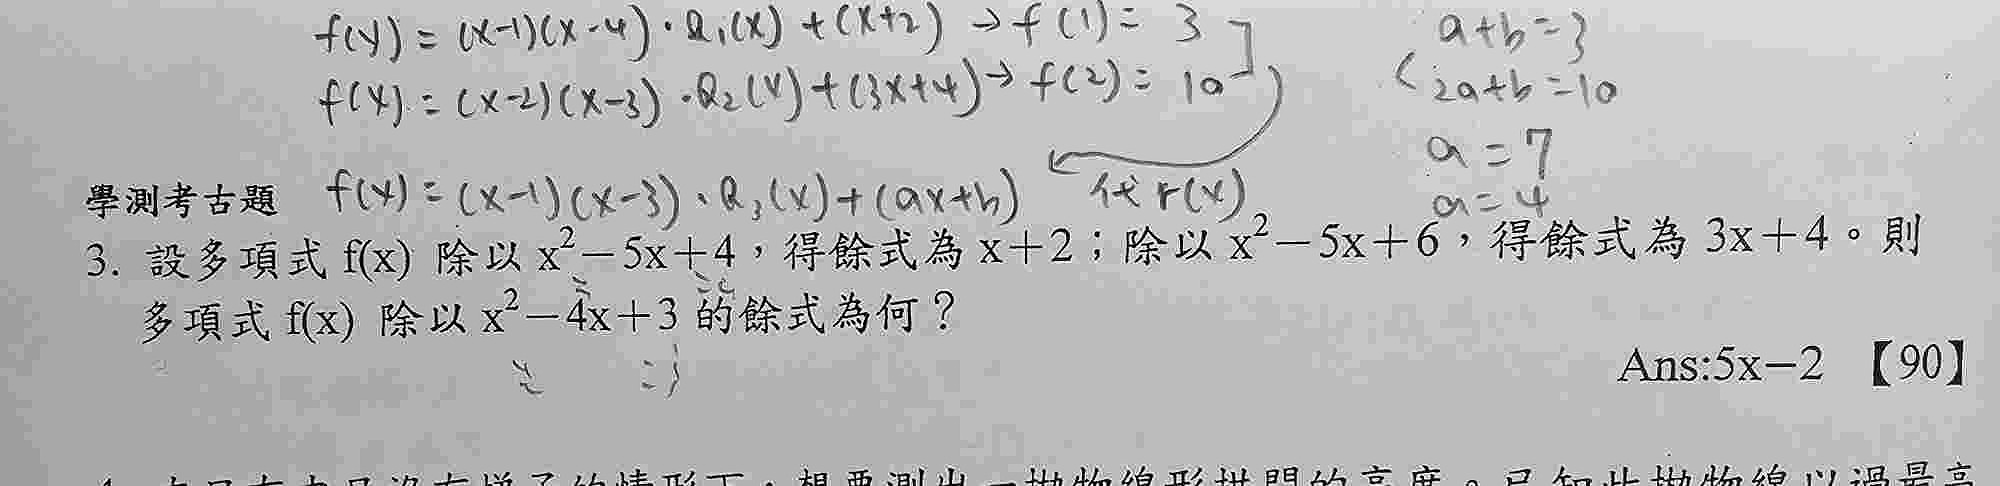 f(x) = (x-1)(x-4)·Q₁(x) + (x+2) → f(1) = 3
f(x) = (x-2)(x-3)·Q₂(x) + (3x+4) → f(2) = 10
f(x) = (x-1)(x-3)·Q₃(x) + (ax+b) 代 r(x)
a+b=3
2a+b=10
a=7
a=4
學測考古題
3. 設多項式 f(x) 除以 x²-5x+4，得餘式為 x+2；除以 x²-5x+6，得餘式為 3x+4。則
多項式 f(x) 除以 x²-4x+3 的餘式為何？
Ans:5x-2 【90】